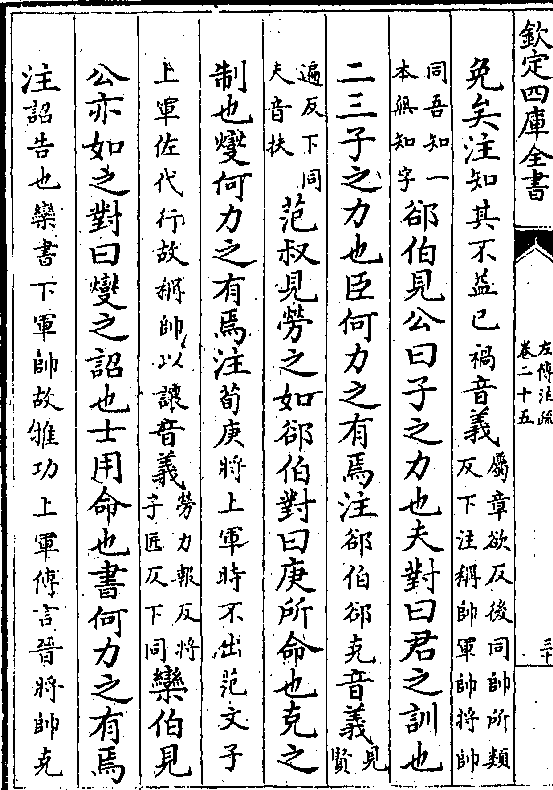 欽定四庫全書
左傳注疏
卷二十五
三十
免矣注知其不益已禍音義屬章欲反後同帥所類反下注稱帥軍帥將帥
同吾知一本無知字郤伯見公曰子之力也夫對曰君之訓也
二三子之力也臣何力之有焉注郤伯郤克音義見賢
遍反下同夫音扶范叔見勞之如郤伯對曰庚所命也克之
制也燮何力之有焉注荀庚將上軍時不出范文子
上軍佐代行故稱帥以讓音義勞力報反將子匠反下同欒伯見
公亦如之對曰燮之詔也士用命也書何力之有焉
注詔告也欒書下軍帥故推功上軍傳言晉將帥克